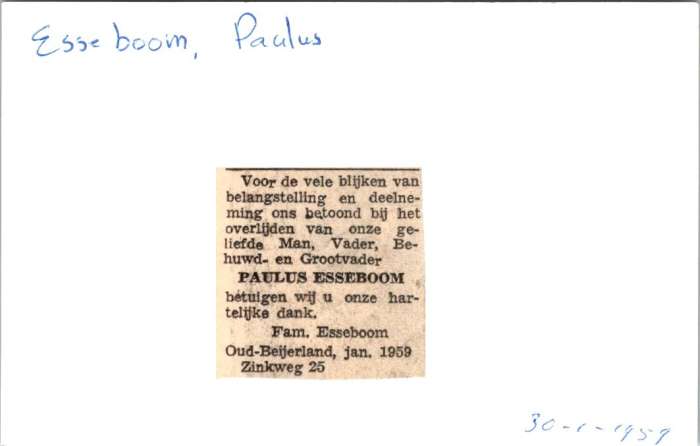 Esseboom, Paulus
Voor de vele blijken van
belangstelling en deelne-
ming ons betoond bij het
overlijden van onze ge-
liefde Man, Vader, Be-
huwd- en Grootvader
PAULUS ESSEBOOM
betuigen wij u onze har-
telijke dank.
Fam. Esseboom
Oud-Beijerland, jan. 1959
Zinkweg 25
30-1-1959